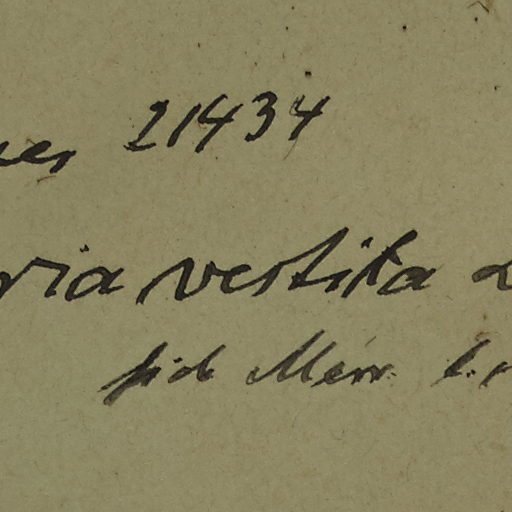 21434
ria vestita
fide Merr.